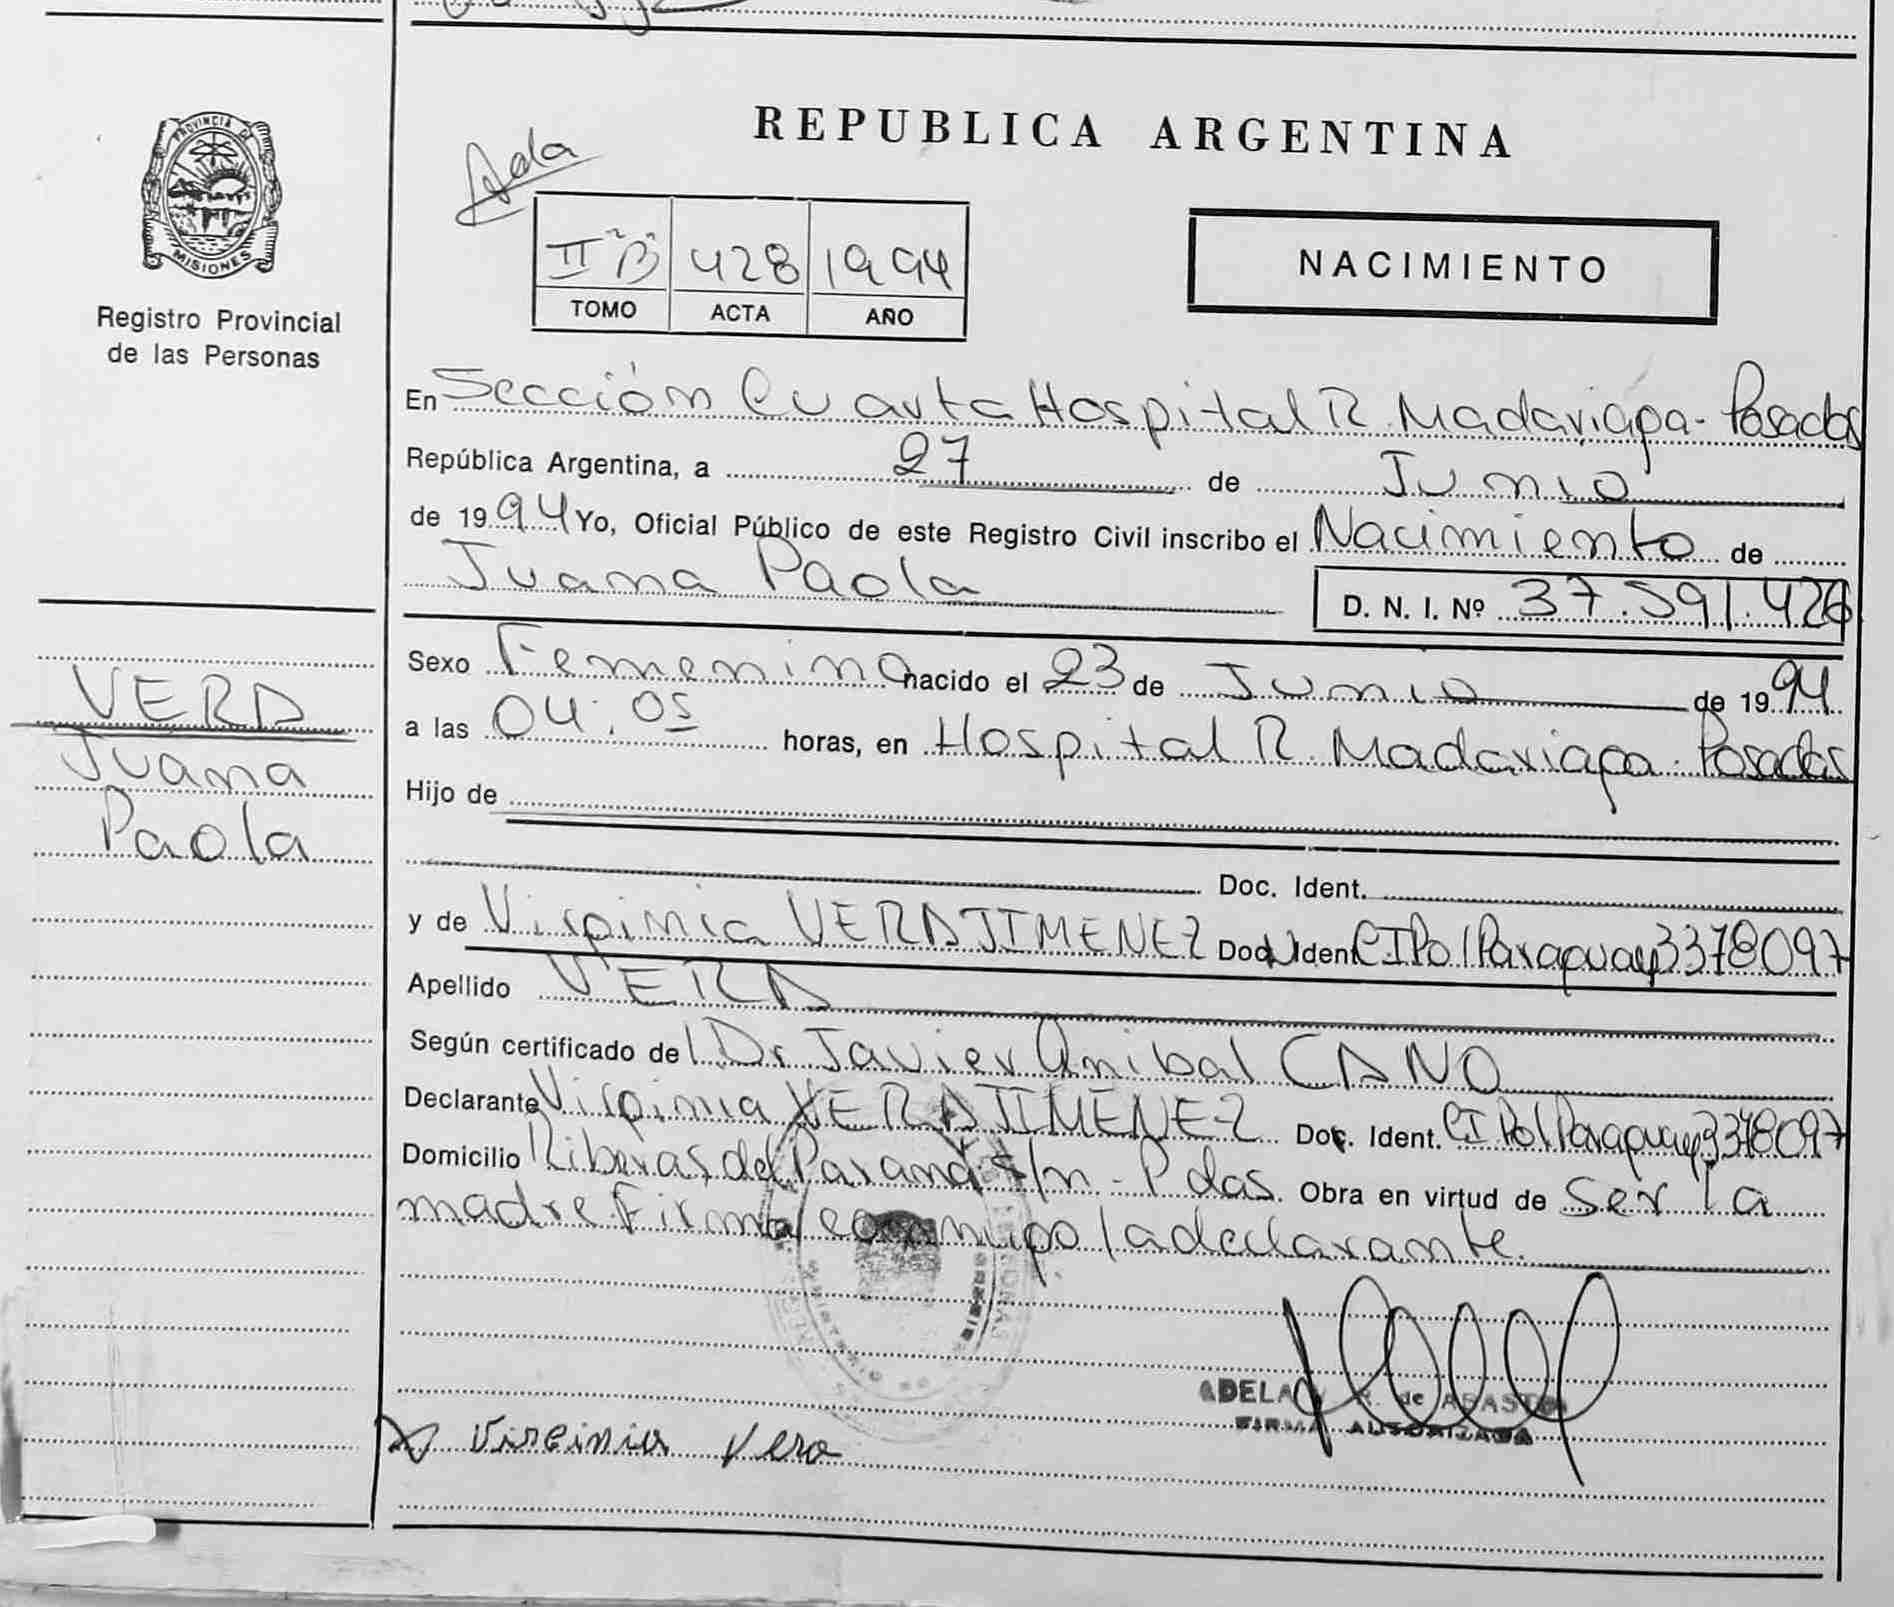 PROVINCIA DE
MISIONES
Registro Provincial
de las Personas
VERA
Juana
Paola
REPUBLICA ARGENTINA
Ada
II "B" 428 1994
TOMO ACTA AÑO
NACIMIENTO
En Sección Cuarta Hospital R. Madariaga - Posadas
República Argentina, a 27 de Junio
de 1994 Yo, Oficial Público de este Registro Civil inscribo el Nacimiento de
Juana Paola D. N. I. Nº 37.591.426
Sexo Femenino nacido el 23 de Junio de 1994
a las 04:05 horas, en Hospital R. Madariaga - Posadas
Hijo de
Doc. Ident.
y de Virginia VERA JIMENEZ Doc. Ident. CIPol Paraguay 3378097
Apellido VERA
Según certificado del Dr Javier Anibal CANO
Declarante Virginia VERA JIMENEZ Doc. Ident. CI Pol Paraguay 3378097
Domicilio Riberas del Paraná s/n - Pdas. Obra en virtud de ser la
madre Firma conmigo la declarante.
ADELA R. de
FIRMA AUTORIZADA
Virginia Vera